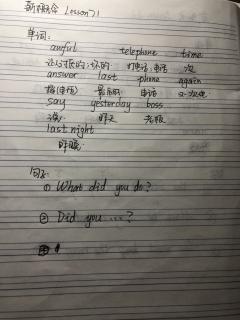 新概念 Lesson 71
单词:
awful telephone time
让人讨厌的;坏的 打电话;电话 次
answer last phone again
接(电话) 最后的 电话 又一次地
say yesterday boss
说 昨天 老板
last night
昨晚
句子:
① What did you do?
② Did you ...?